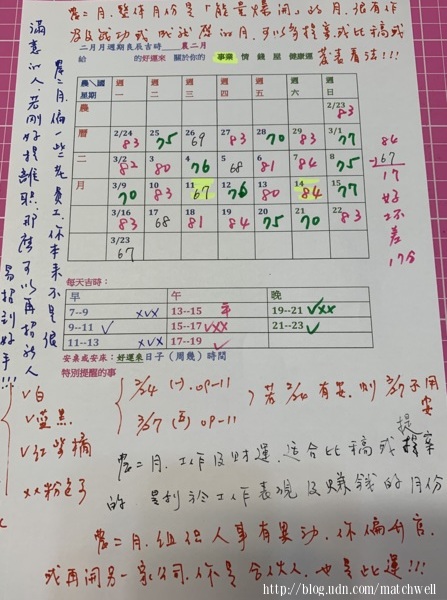 農二月,整個月份是「能量爆開」的月,很有作
為及成功或成就感的月,可以多提案或比稿或
發表看法!!!
二月月週期良辰吉時____農二月
給 的好運來 關於你的 事業 情 錢 屋 健康運
農\國 週 週 週 週 週 週 週
星期 一 二 三 四 五 六 日
農 2/23
83
曆 2/24 25 26 27 28 29 3/1
83 75 69 83 70 83 77
二 3/2 3 4 5 6 7 8
82 80 76 68 81 84 75
月 3/9 10 11 12 13 14 15
70 83 67 76 80 84 77
3/16 17 18 19 20 21 22
83 68 81 84 75 70 83
3/23
67
84
-67
17
好
壞
差
17分
滿意的人,若剛好提離職,那麼可以再招新人
農二月,有一些老員工,你本來不是很
易招到好手!!!
每天吉時:
早 午 晚
7--9 xvx 13--15 平 19--21 ✓xx
9--11 ✓ 15--17 ✓xx 21--23 ✓
11--13 xvx 17--19 ✓
安桌或安床:好運來日子(周幾)時間
特別提醒的事
v 白
v 藍黑
v 紅紫橘
xx粉色3
2/24 (一) 09-11
3/27 (五) 09-11
若2/24有安,則3/27不用
安
農二月,工作及財運,適合比稿或提案
的,是利於工作表現及賺錢的月份
農二月,組織人事有異動,你偏升官,
或再開另一家公司,你是合伙人,也是此運!!!
http://blog.udn.com/matchwell